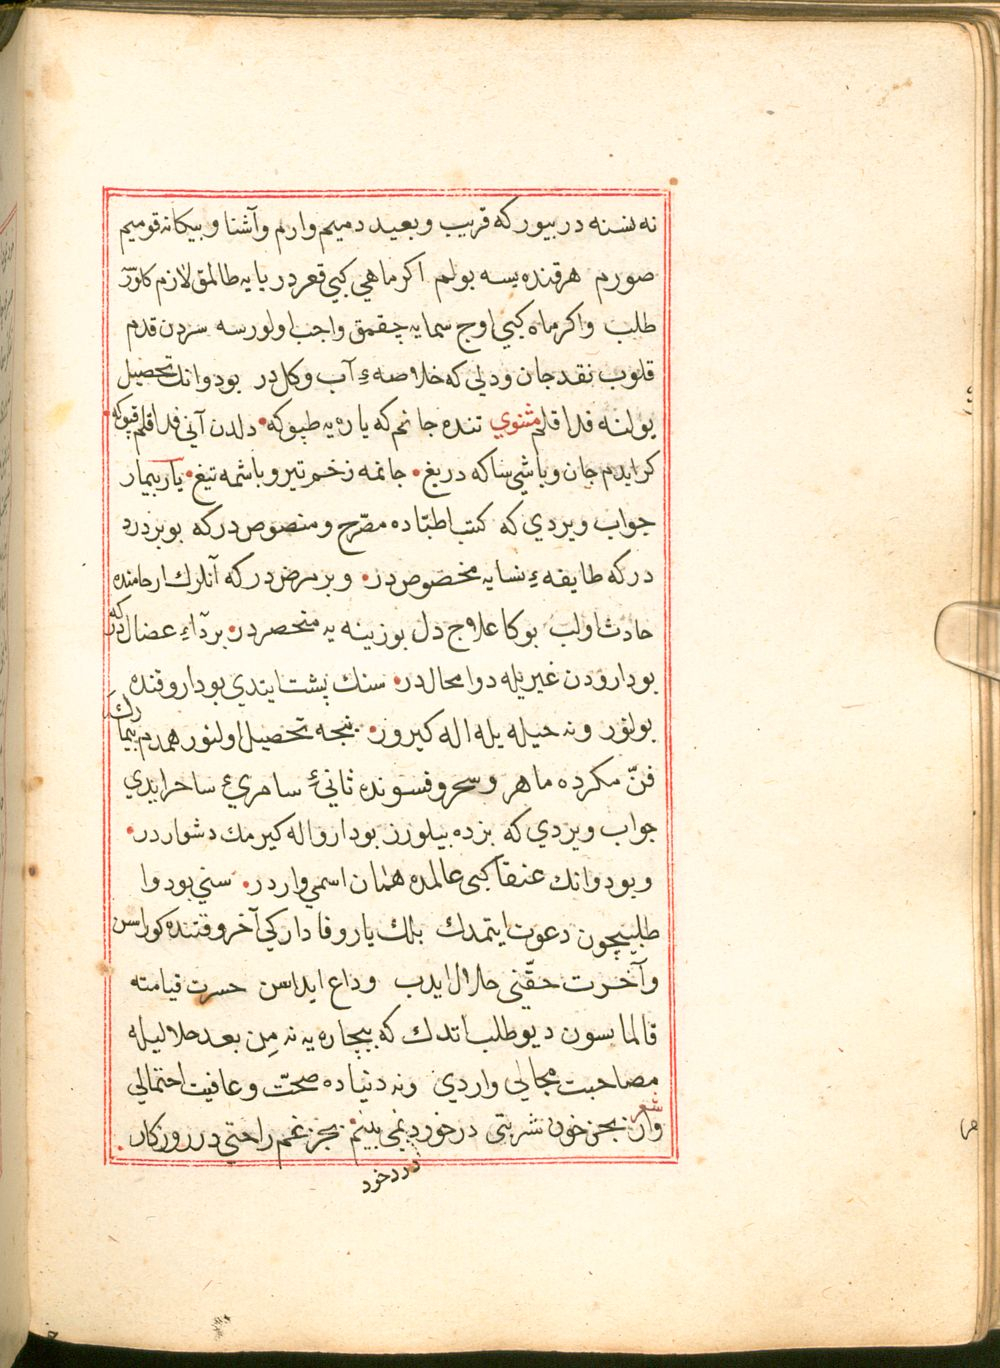 نه نسنه در بیور که قریب و بعید دمیم وارم و آشنا و بیکانه قومیم
صورم هر قنده یسه بولم اکر ماهی کبی قعر دریایه طالمق لازم کلور
طلب و اکر ماه کبی اوج سمایه چقمق واجب اولورسه سردن قدم
قلوب نقد جان و دلی که خلاصهٔ آب و کل در بو دوانك تحصیل
یولنه فدا قلم مثنوي تنده جانم که یاره یه طپو که دلدن آنی فدا قلم قپو که
کر ایدم جان و باشی ساکه دریغ جانمه زخم تیر و باشمه تیغ یار بیمار
جواب ویردي که کتب اطبّاده مصّرح و منصوص در که بو بر درد
در که طایفهٔ نسایه مخصوص در و بر مرض در که آنلرك ارحامنده
حادث اولب بوکا علاج دل بوزینه یه منحصردر بر دآءِ عضال در که
بو دارودن غیریله دوا محال در سنك پشت ایتدي بو دارو قنده
بولنور و نه حیله یله اله کیرور نیجه تحصیل اولنور همدم بیمارك
فنّ مکرده ماهر و سحر و فسونده ثانیٔ سامرئ ساحر ایدي
جواب ویردي که بزده بیلورز بو دارو اله کیرمك دشوار در
و بو دوانك عنقا کبی عالمده همان اسمي وار در سني بو دوا
طلبیچون دعوت ایتمدك بلك یار وفادارکي آخر وقتنده کوراسن
و آخرت حقّنی حلال ایدب وداع ایداسن حسرت قیامته
قالماسون دیو طلب اتدك که بیچاره یه نه مِن بعد حلالیله
مصاحبت مجالي واردي و نه دنیاده صحّت و عافیت احتمالي
وار شعر بجز خون شربتی در خور نمی بینم بجز غم راحتي در روزکار
درد خود